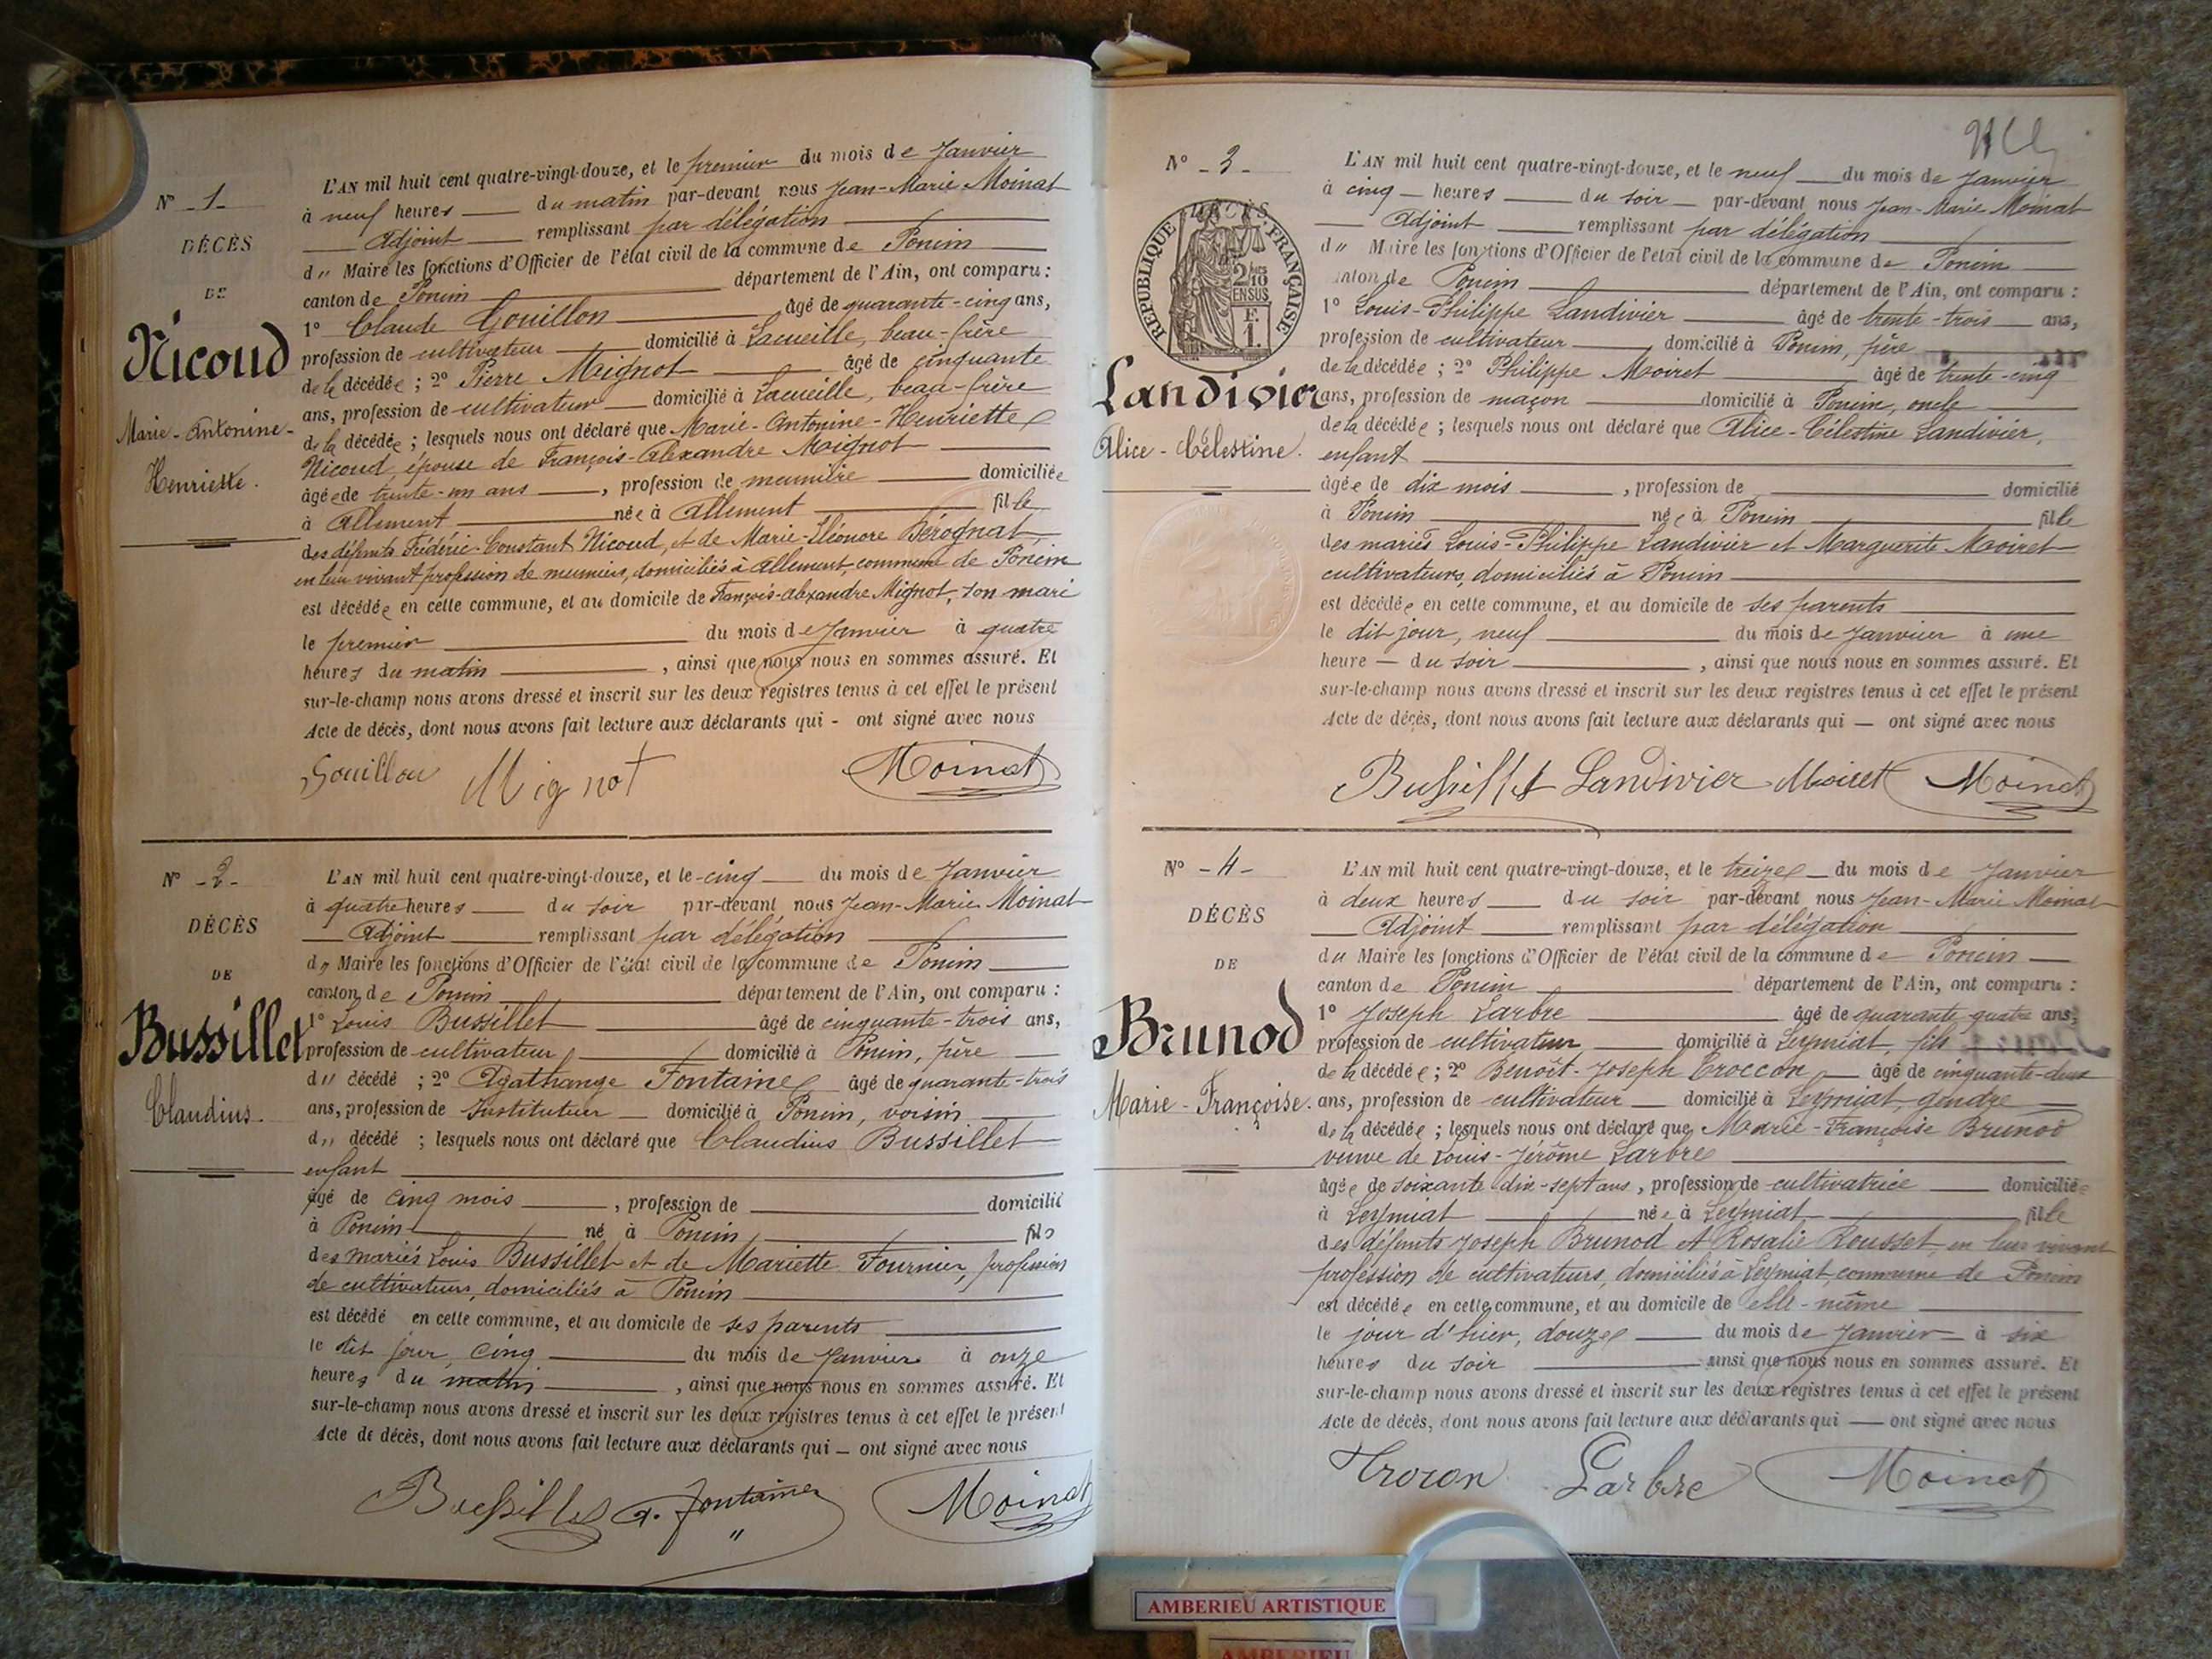 N° - 1 -
DÉCÈS
DE
Nicoud
Marie-Antonine-
Henriette.
L'AN mil huit cent quatre-vingt-douze, et le premier du mois de Janvier
à neuf heures du matin par-devant nous Jean-Marie Moinat
Adjoint remplissant par délégation
du Maire les fonctions d'Officier de l'état civil de la commune de Poncin
canton de Poncin département de l'Ain, ont comparu :
1° Claude Gouillon âgé de quarante-cinq ans,
profession de cultivateur domicilié à Lacueille, beau-frère
de la décédée ; 2° Pierre Mignot âgé de cinquante
ans, profession de cultivateur domicilié à Lacueille, beau-frère
de la décédée ; lesquels nous ont déclaré que Marie-Antonine-Henriette
Nicoud, épouse de François-Alexandre Mignot
âgée de trente-un ans, profession de meunière domiciliée
à Allement née à Allement fille
des défunts Frédéric-Constant Nicoud, et de Marie-Eléonore Bérognat,
en leur vivant profession de meuniers, domiciliés à Allement, commune de Poncin
est décédée en cette commune, et au domicile de François-Alexandre Mignot, son mari
le premier du mois de Janvier à quatre
heures du matin, ainsi que nous nous en sommes assuré. Et
sur-le-champ nous avons dressé et inscrit sur les deux registres tenus à cet effet le présent
Acte de décès, dont nous avons fait lecture aux déclarants qui - ont signé avec nous
Gouillon Mignot Moinat
N° - 2 -
DÉCÈS
DE
Bussillet
Claudius.
L'AN mil huit cent quatre-vingt-douze, et le cinq du mois de Janvier
à quatre heures du soir par-devant nous Jean-Marie Moinat
Adjoint remplissant par délégation
du Maire les fonctions d'Officier de l'état civil de la commune de Poncin
canton de Poncin département de l'Ain, ont comparu :
1° Louis Bussillet âgé de cinquante-trois ans,
profession de cultivateur domicilié à Poncin, père
du décédé ; 2° Agathange Fontaine âgé de quarante-trois
ans, profession de Instituteur domicilié à Poncin, voisin
du décédé ; lesquels nous ont déclaré que Claudius Bussillet
enfant
âgé de cinq mois, profession de domicilié
à Poncin né à Poncin fils
des mariés Louis Bussillet et de Mariette Fournier, profession
de cultivateurs, domiciliés à Poncin
est décédé en cette commune, et au domicile de ses parents
le dit jour, cinq du mois de Janvier à onze
heures du matin, ainsi que nous nous en sommes assuré. Et
sur-le-champ nous avons dressé et inscrit sur les deux registres tenus à cet effet le présent
Acte de décès, dont nous avons fait lecture aux déclarants qui - ont signé avec nous
Bussillet A. Fontaine Moinat
N° - 3 -
DÉCÈS
RÉPUBLIQUE FRANÇAISE
2/10 EN SUS
F. 1.
Landivier
Alice-Célestine.
L'AN mil huit cent quatre-vingt-douze, et le neuf du mois de Janvier
à cinq heures du soir par-devant nous Jean-Marie Moinat
Adjoint remplissant par délégation
du Maire les fonctions d'Officier de l'état civil de la commune de Poncin
canton de Poncin département de l'Ain, ont comparu :
1° Louis-Philippe Landivier âgé de trente-trois ans,
profession de cultivateur domicilié à Poncin, père
de la décédée ; 2° Philippe Moiret âgé de trente-cinq
ans, profession de maçon domicilié à Poncin, oncle
de la décédée ; lesquels nous ont déclaré que Alice-Célestine Landivier,
enfant
âgée de dix mois, profession de domicilié
à Poncin née à Poncin fille
des mariés Louis-Philippe Landivier et Marguerite Moiret
cultivateurs, domiciliés à Poncin
est décédée en cette commune, et au domicile de ses parents
le dit jour, neuf du mois de Janvier à une
heure du soir, ainsi que nous nous en sommes assuré. Et
sur-le-champ nous avons dressé et inscrit sur les deux registres tenus à cet effet le présent
Acte de décès, dont nous avons fait lecture aux déclarants qui — ont signé avec nous
Bussillet Landivier Moiret Moinat
N° - 4 -
DÉCÈS
DE
Brunod
Marie-Françoise.
L'AN mil huit cent quatre-vingt-douze, et le treize du mois de Janvier
à deux heures du soir par-devant nous Jean-Marie Moinat
Adjoint remplissant par délégation
du Maire les fonctions d'Officier de l'état civil de la commune de Poncin
canton de Poncin département de l'Ain, ont comparu :
1° Joseph Larbre âgé de quarante quatre ans,
profession de cultivateur domicilié à Leymiat, fils
de la décédée ; 2° Benoît-Joseph Croccon âgé de cinquante-deux
ans, profession de cultivateur domicilié à Leymiat, gendre
de la décédée ; lesquels nous ont déclaré que Marie-Françoise Brunod
veuve de Louis-Jérôme Larbre
âgée de soixante dix-sept ans, profession de cultivatrice domiciliée
à Leymiat née à Leymiat fille
des défunts Joseph Brunod et Rosalie Rousset, en leur vivant
profession de cultivateurs, domiciliés à Leymiat commune de Poncin
est décédée en cette commune, et au domicile de elle-même
le jour d'hier, douze du mois de Janvier à six
heures du soir ainsi que nous nous en sommes assuré. Et
sur-le-champ nous avons dressé et inscrit sur les deux registres tenus à cet effet le présent
Acte de décès, dont nous avons fait lecture aux déclarants qui — ont signé avec nous
Larbre Moinat
AMBERIEU ARTISTIQUE
AMBERIEU